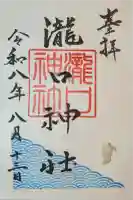 奉拝
瀧口神社
瀧口
神社
令和八年八月十二日